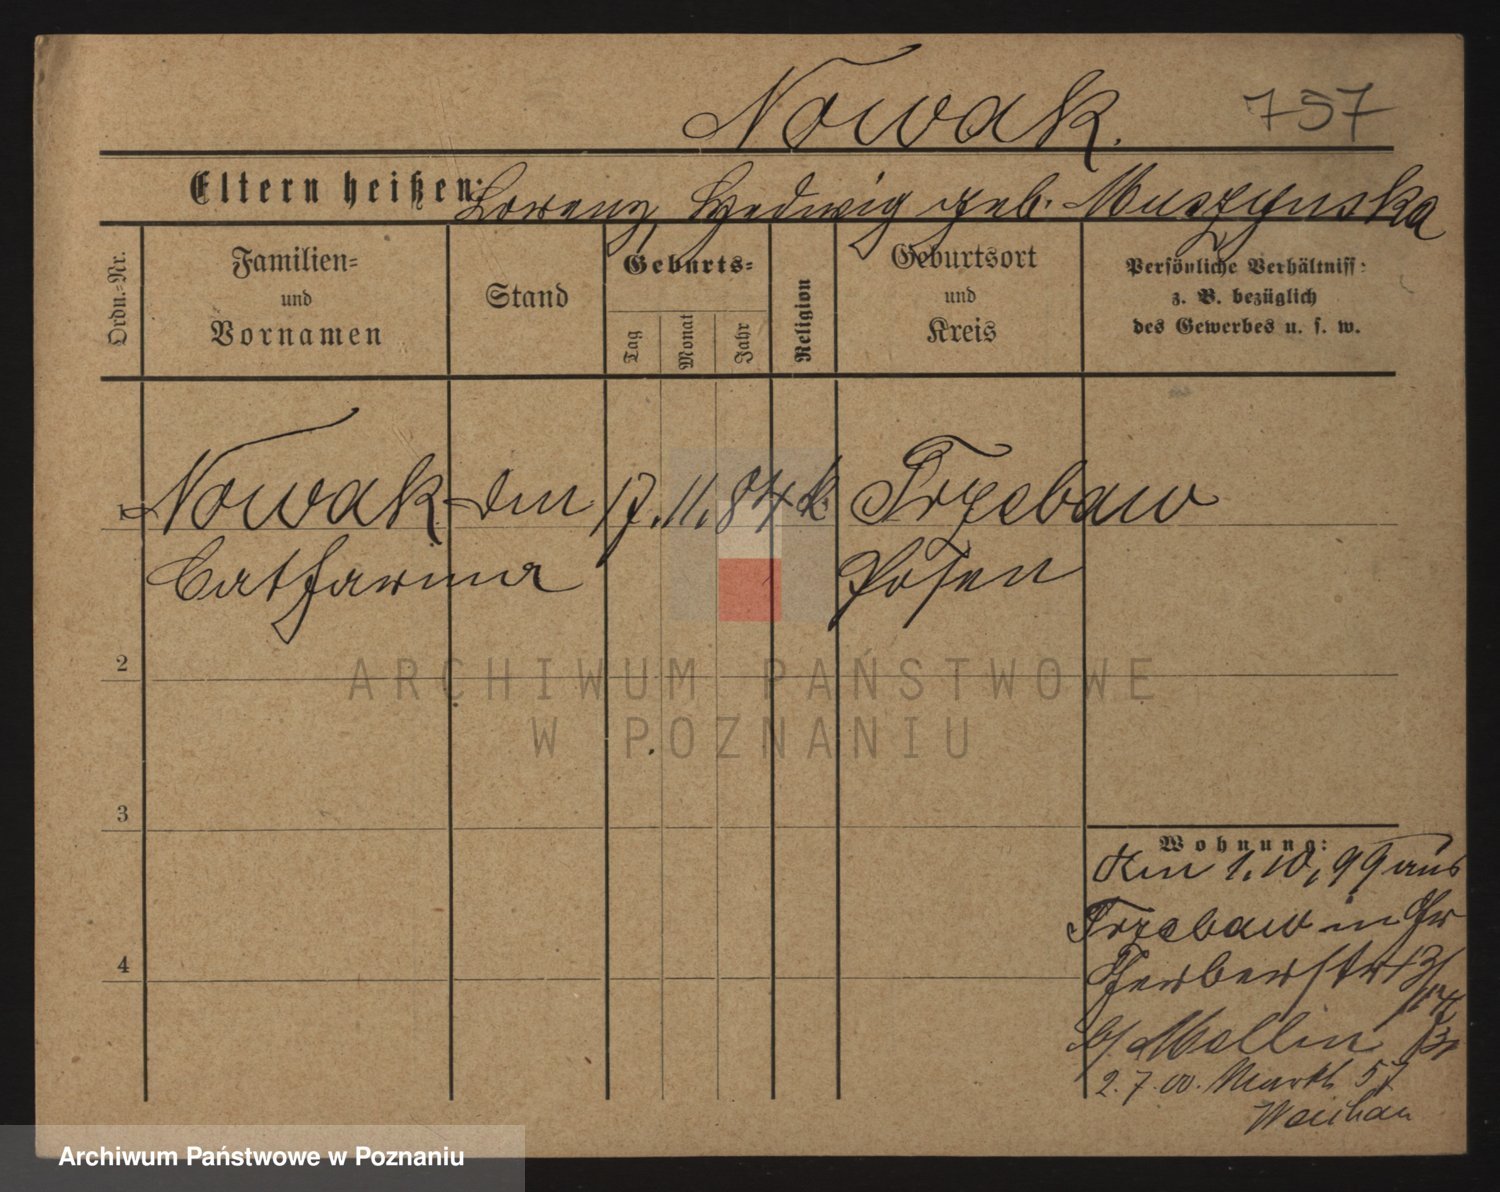 Nowak. 757
Eltern heißen: Lorenz, Hedwig geb. Muszynska
Ordn.-Nr.
Familien-
und
Vornamen
Stand
Geburts-
Tag
Monat
Jahr
Religion
Geburtsort
und
Kreis
Persönliche Verhältniss:
z. B. bezüglich
des Gewerbes u. s. w.
1 Nowak dm 17. 11. 84 k. Trzebaw
Catharina Posen
2
ARCHIWUM PAŃSTWOWE
W POZNANIU
3
Wohnung:
Am 1.10.99 aus
Trzebaw in Gr
4
Gerberstr 13/
b/ Mollin
2.7.00. Markt 57
Archiwum Państwowe w Poznaniu